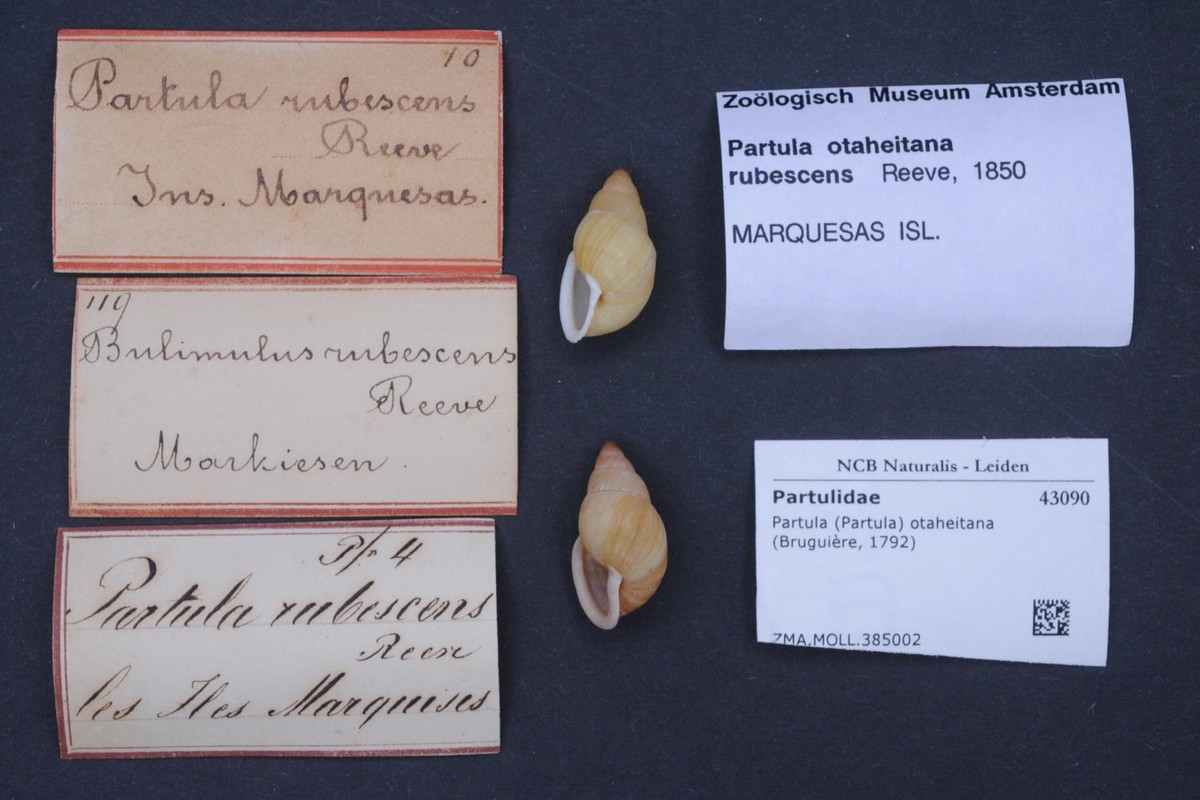 10
Partula rubescens
Reeve
Ins. Marquesas.
119
Bulimulus rubescens
Reeve
Markiesen.
Pfr 4
Partula rubescens
Reeve
les Iles Marquises
Zoölogisch Museum Amsterdam
Partula otaheitana
rubescens Reeve, 1850
MARQUESAS ISL.
NCB Naturalis - Leiden
Partulidae 43090
Partula (Partula) otaheitana
(Bruguière, 1792)
ZMA.MOLL.385002